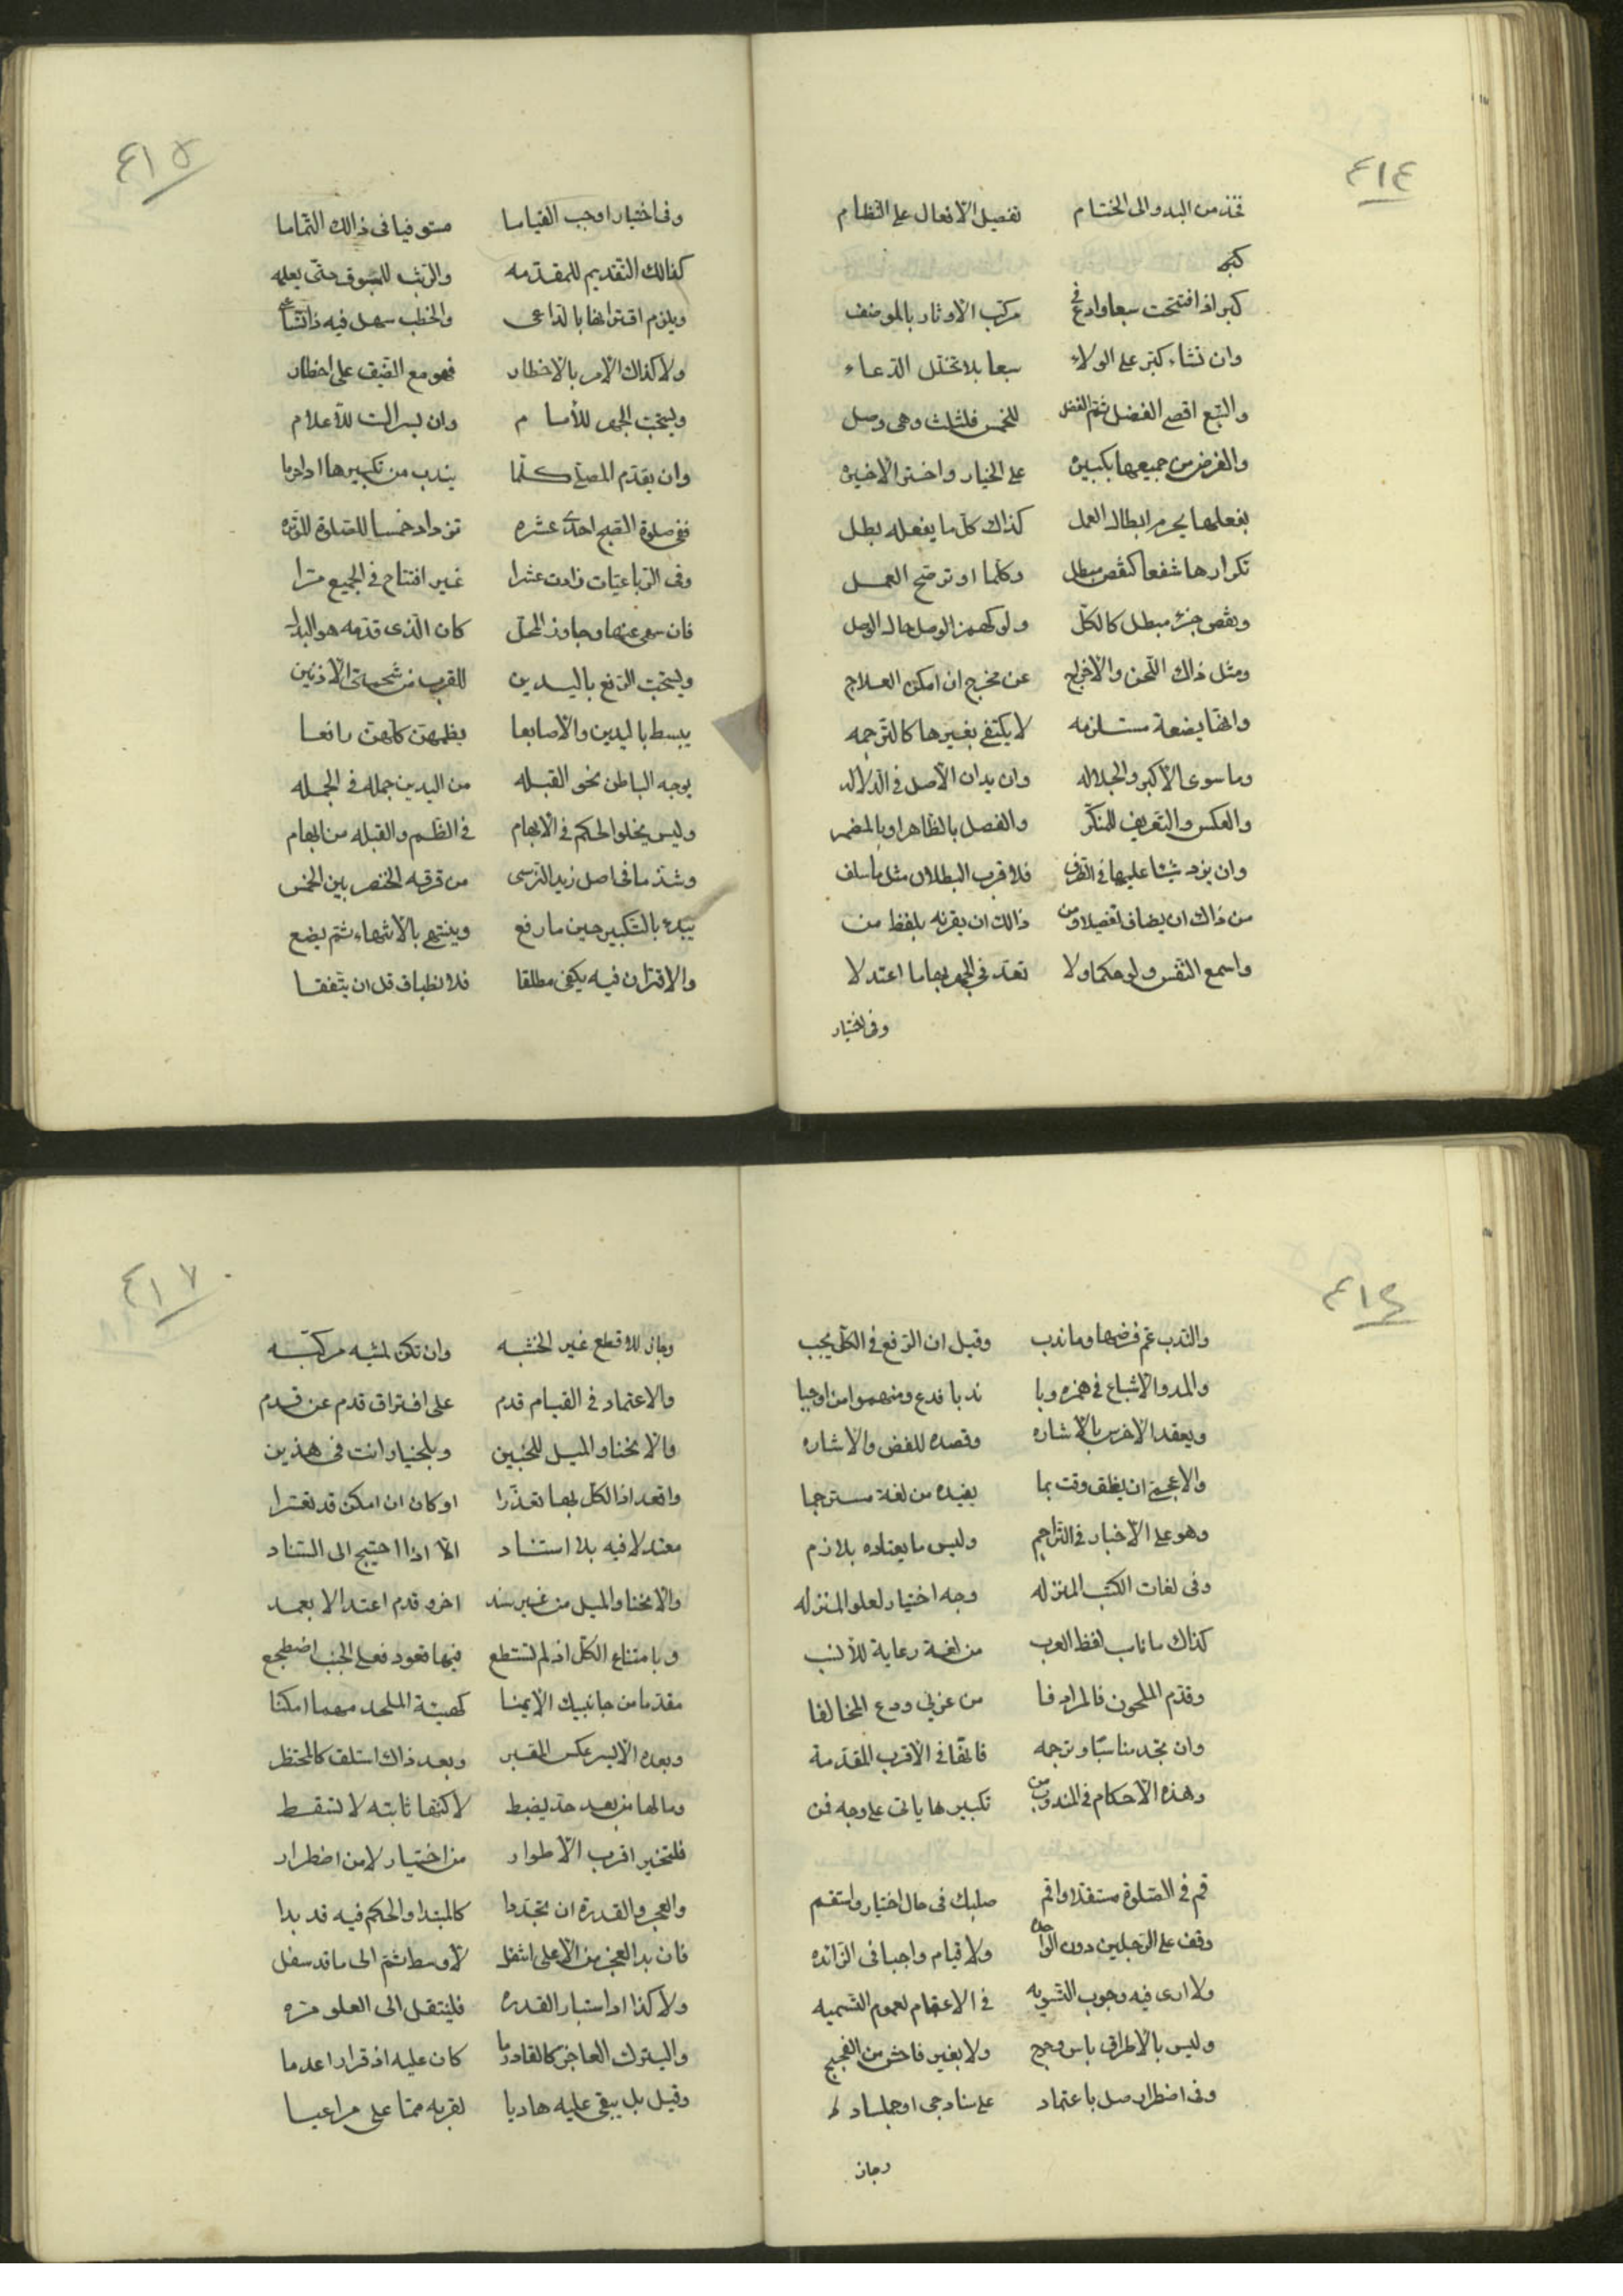 ٤١٤
فخذ من البدو الى الختام تفصيل الافعال على النظام
كبر
كبر اذا افتتحت سبعا وادع في مركب الاوتار بالموضف
وان تشاء كبر على الولاء سبعا بلا تخلل الدعاء
والتبع اقصى الفضل ثم الفضل للخمس فلثلث وهى وصل
والفرض من جميعها تكبيره على الخيار واختر الاخيره
بفعلها يحرم ابطال العمل كذاك كل ما يفعله بطل
تكرارها شفعا كنقص مبطل وكلما اوتر صح العمل
ونقص جزء مبطل كالكل ولو كهمز الوصل حال الوصل
ومثل ذاك اللحن والاخراج عن مخرج ان امكن العلاج
وانها بضعة مستلزمه لا يكتفى بغيرها كالترجمه
وما سوى الاكبر والجلاله وان يدان الاصل فى الدلاله
والعكس والتعريف للمنكر والفصل بالظاهر او بالمضمر
وان يزد شيئا عليها فى الطرف فلاقرب البطلان مثل ما سلف
من ذاك ان يضاف تفضيلا ومن ذالك ان يقرنه بلفظ من
واسمع النفس ولو حكما ولا تعد فى الجهر بها ما اعتدلا
وفى اختيار
٤١٥
وفى اختيار اوجب القياما مستوفيا فى ذالك التماما
كفالك التقديم للمقدمه والريث للمسبوق حتى يعلمه
ويلزم اقترانها بالداعى والخطب سهل فيه ذا اتساع
ولا كذاك الامر بالاخطار فهو مع الضيق على اخطار
ويستحب الجهر للأمام وان يسر الست للأعلام
وان يقدم المصلى كلما يندب من تكبيرها اذا حرما
ففى صلوة الصبح احدى عشره تزداد خمسا للصلوة الوتره
وفى الرباعيات زادت عشرا غير افتتاح فى الجميع مرا
فان سهى عنها وجاوز المحل كان الذى قدمه هو البدل
ويستحب الرفع باليدين للقرب من شحمتى الاذنين
يبسط باليدين والاصابعا بظمهن كلهن رافعا
يوجه الباطن نحو القبله من اليدين جمله فى الجمله
وليس يخلو الحكم فى الابهام فى الظم والقبله من ابهام
وشذ ما فى اصل زيد النرسى من فرقه الخنصر بين الخمس
يبدء بالتكبير حين ما رفع وينتهى بالانتهاء ثم يضع
والاقتران فيه يكفى مطلقا فلانطباق قل ان يتفقا
٤١٦
والندب عم فرضها وما ندب وقيل ان الرفع فى الكل يجب
والمد والاشباع فى همزه وبا ندبا فدع ومنهموا من اوجبا
ويعقد الاخرس بالاشاره وقصده للفض والاشاره
والاعجمى ان يظق وقت بما يفيده من لغة مسترجما
وهو على الاخبار فى التراجم وليس ما يعتاده بلازم
وفى لغات الكتب المنزله وجه اختيار لعلو المنزله
كذاك ما ناب لفظ العرب من لغة رعاية للأنسب
وقدم الملحون فالمرادفا من عربى ودع المخالفا
وان تجد مناسبا وترجمه فانها فى الاقرب المقدمة
وهذه الاحكام فى المندوب من تكبيرها ياتى على وجه فن
قم فى الصلوة مستقلا واقم صلبك فى حال اختيار واستقم
وقف على الرجلين دون الواحده ولا قيام واجبا فى الزائده
ولا ارى فيه وجوب التسويه فى الاعتمام لعموم التسميه
وليس بالاطراق باس وحج ولا بغير فاحش من الفجيج
وفى اضطرار صل باعتماد على سنا وجى او جلسا
وجاز
٤١٧
وجاز للاقطع غير الخشبه وان تكن لمشيه مركبه
والاعتماد فى القيام قدم على افتراق قدم عن قدم
والانحنا والميل للجنبين وبالخيار انت فى هذين
واقعد اذا الكل بها تعذرا او كان ان امكن قد تعسرا
معتدلا فيه بلا استناد الا اذا احتيج الى السناد
والانحنا والميل من غير سند اخر وقدم اعتدالا بعمد
وبامتناع الكل اذ لم تستطع فيها تعود فعلى الجنب اضطجع
مقدما من جانبيك الايمنا كهيئة الملحد مهما امكنا
وبعده الايسر عكس المقبر وبعد ذاك استلق كالمحتظر
وما لها من بعد حد يضبط لاكنها ثابته لا تسقط
فلتخير اقرب الاطوار من اختيار لا من اضطرار
والعجز والقدرة ان تجددا كالمبتدا والحكم فيه قد بدا
فان بدا العجز من الاعلى انتقل لأوسط ثم الى ما قد سفل
ولا كذا اذا استبار القدره فلينتقل الى العلو مره
واليترك العاجز كالقادر ما كان عليه اذ قرارا عدما
وقيل بل يبقى عليه هاديا لقربه مما على مراعيا